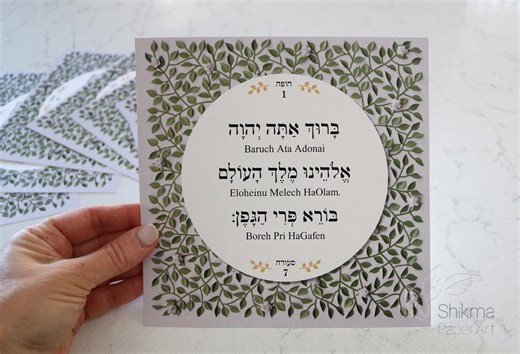 חופה
1
בָּרוּךְ אַתָּה יְהוָה
Baruch Ata Adonai
אֱלֹהֵינוּ מֶלֶךְ הָעוֹלָם
Eloheinu Melech HaOlam.
בּוֹרֵא פְּרִי הַגָּפֶן:
Boreh Pri HaGafen
סעודה
7
Shikma
Paper Art